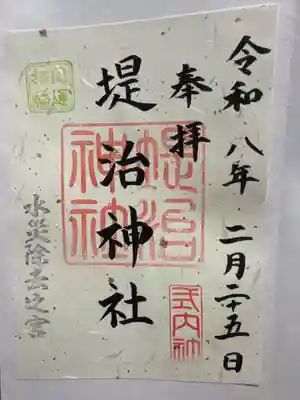 令和八年 二月二十五日
奉拝
堤治神社
堤治神社
式内社
開運招福
水災除去之宮